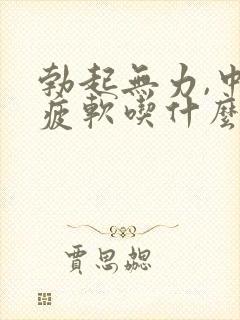 勃起無力,中
疲軟喫什麼
賈思勰